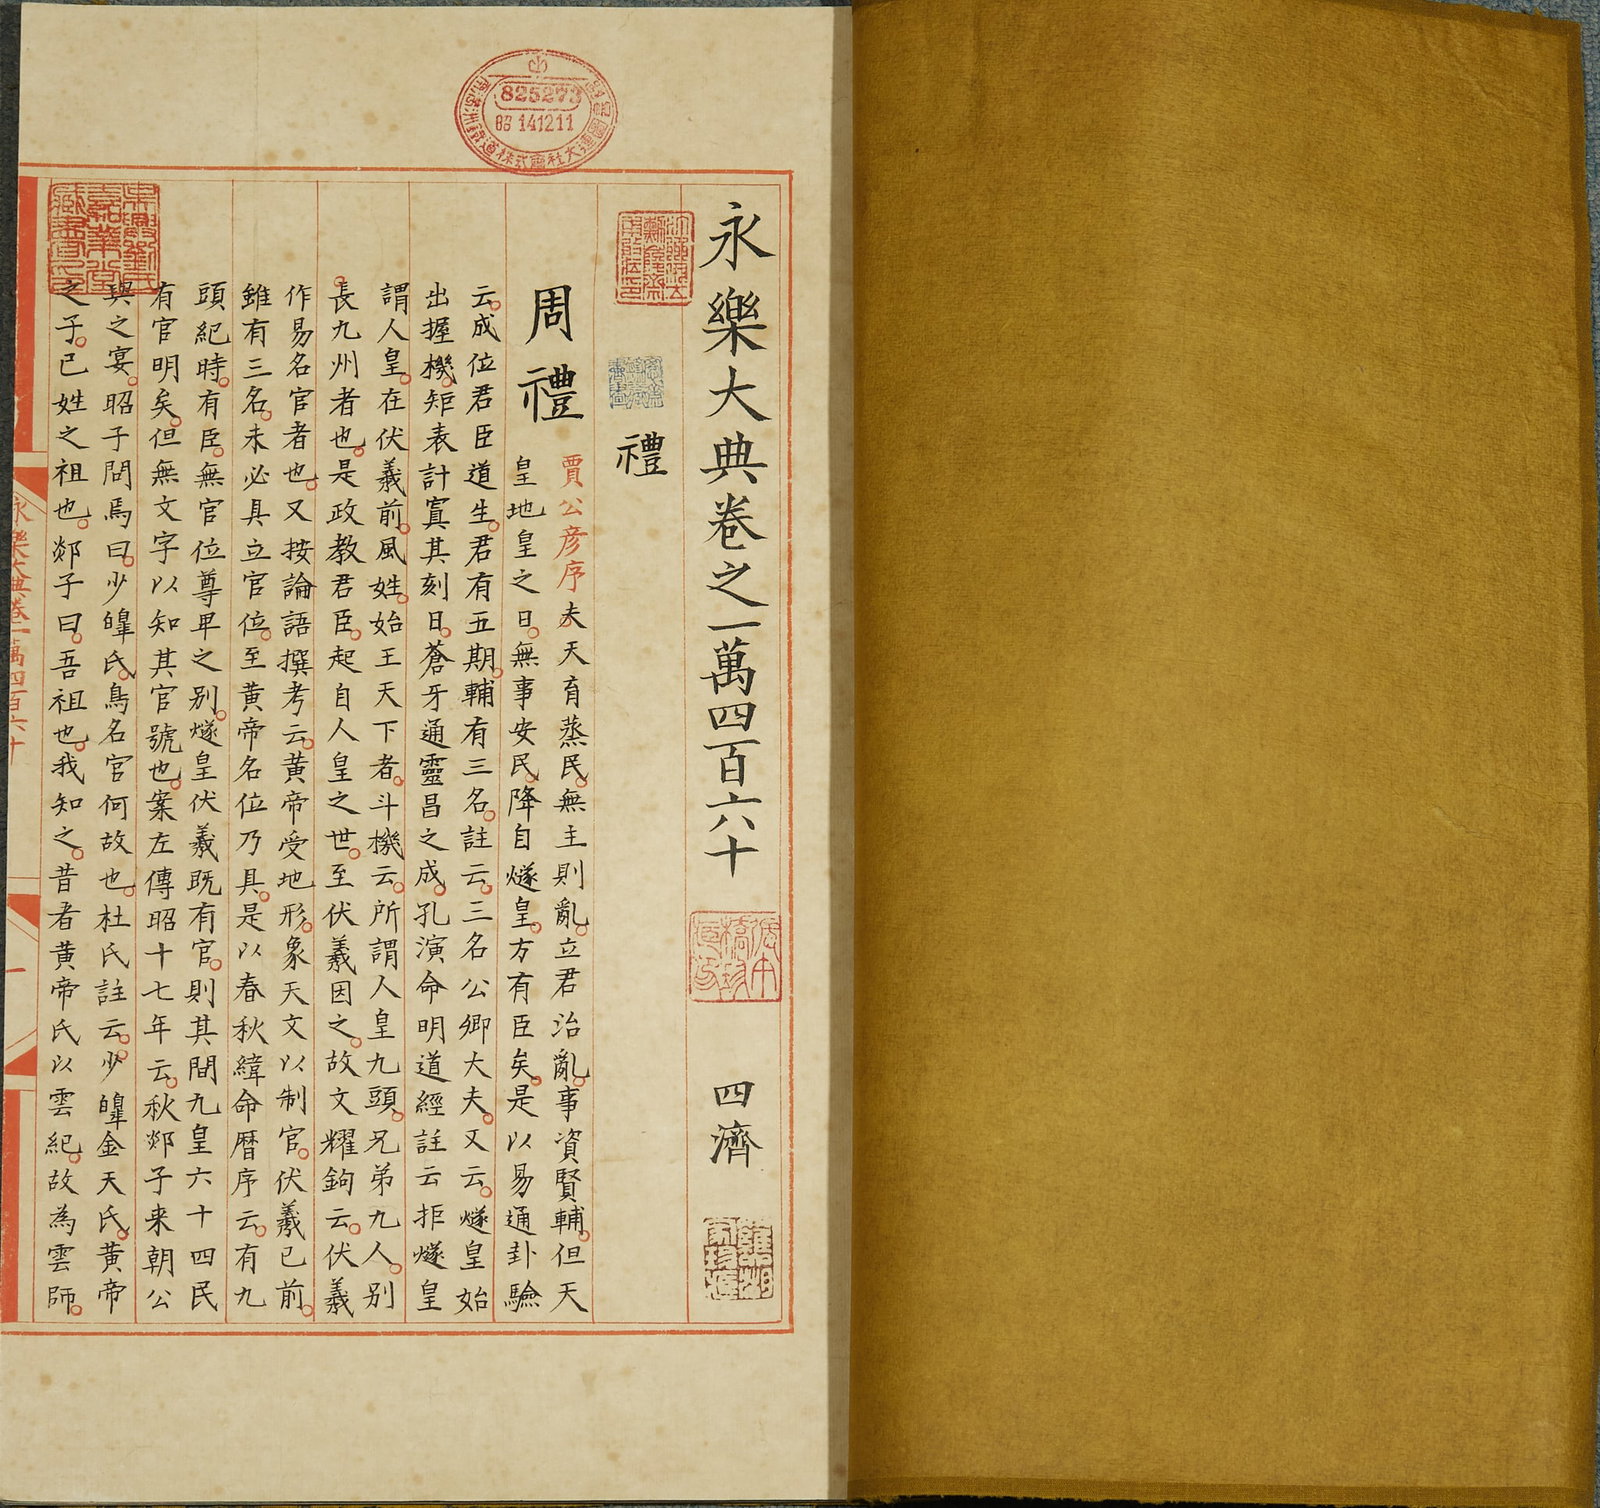 永樂大典卷之一萬四百六十 四濟
禮
周禮
賈公彦序夫天育蒸民無主則亂立君治亂事資賢輔但天
皇地皇之日無事安民降自燧皇方有臣矣是以易通卦驗
云成位君臣道生君有五期輔有三名註云三名公卿大夫又云燧皇始
出握機矩表計寘其刻日蒼牙通靈昌之成孔演命明道經註云拒燧皇
謂人皇在伏羲前風姓始王天下者斗機云所謂人皇九頭兄弟九人别
長九州者也是政教君臣起自人皇之世至伏羲因之故文耀鉤云伏羲
作易名官者也又按論語撰考云黄帝受地形象天文以制官伏羲已前
雖有三名未必具立官位至黄帝名位乃具是以春秋緯命曆序云有九
頭紀時有臣無官位尊卑之别燧皇伏羲既有官則其間九皇六十四民
有官明矣但無文字以知其官號也案左傳昭十七年云秋郯子来朝公
與之宴昭子問焉曰少皥氏鳥名官何故也杜氏註云少皥金天氏黄帝
之子己姓之祖也郯子曰吾祖也我知之昔者黄帝氏以雲紀故為雲師
永樂大典卷一萬四百六十
一
825273
83 141211
南滿洲鐵道株式會社大連圖書館
吳興劉氏嘉業堂藏書印